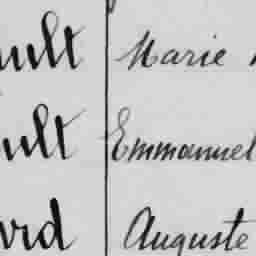 ult Marie
ult Emmanuel
ard Auguste